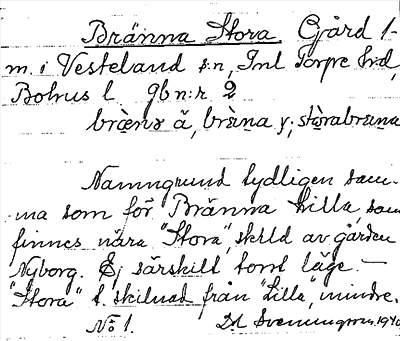 Bränna Stora. Gård 1-
m. i Vesteland s:n, Inl Torpe hd,
Bohus l gbn:r 2
brä̀nɐ ä, brä̀na y; stòrabräna
Namngrund tydligen sam-
ma som för Bränna Lilla, som
finnes nära "Stora", skild av gården
Nyborg. Ej särskilt tomt läge. -
"Stora" t. skilnad från "Lilla", mindre.
No 1. D A Svenningson. 1940